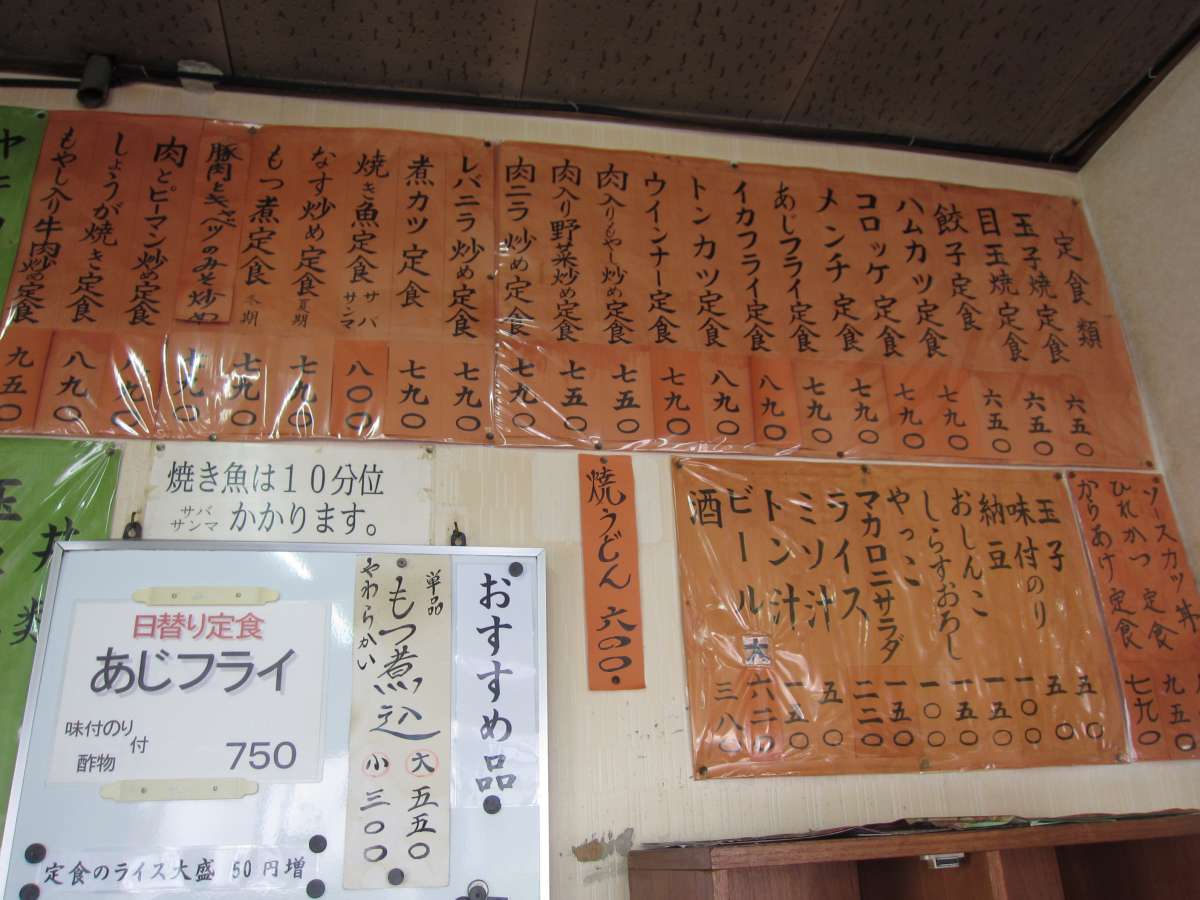 定食類
玉子焼定食 六五〇
目玉焼定食 六五〇
餃子定食 六五〇
ハムカツ定食 七九〇
コロッケ定食 七九〇
メンチ定食 七九〇
あじフライ定食 七九〇
イカフライ定食 八九〇
トンカツ定食 八九〇
ウインナー定食 七九〇
肉入りもやし炒め定食 七五〇
肉入り野菜炒め定食 七五〇
肉ニラ炒め定食 七九〇
レバニラ炒め定食 七九〇
煮カツ定食 七九〇
焼き魚定食 サバ サンマ 八〇〇
なす炒め定食 夏期 七九〇
もつ煮定食 冬期 七九〇
豚肉とキャベツのみそ炒め 七九〇
肉とピーマン炒め定食 七九〇
しょうが焼き定食 八九〇
もやし入り牛肉炒め定食 九五〇
ソースカツ丼
ひれかつ定食 九五〇
からあけ定食 七九〇
玉子 五〇
味付のり 五〇
納豆 一〇〇
おしんこ 一五〇
しらすおろし 一五〇
やっこ 一〇〇
マカロニサラダ 一五〇
ライス 二二〇
ミソ汁 五〇
トン汁 一五〇
ビール 大 六二〇
酒 三八〇
焼うどん 六〇〇
焼き魚は10分位
サバ
サンマ かかります。
おすすめ品
単品
もつ煮込 大 五五〇
やわらかい 小 三〇〇
日替り定食
あじフライ
味付のり
付
酢物
750
定食のライス大盛 50円増